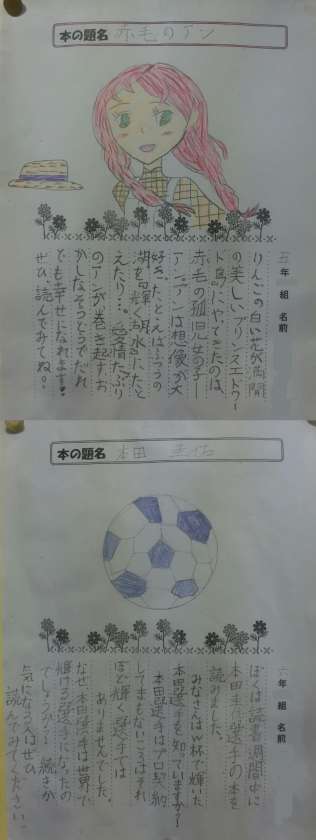 本の題名 赤毛のアン
五年 組 名前
りんごの白い花が満開
の美しいプリンスエドワー
ド島にやってきたのは、
赤毛の孤児の女の子
アン。アンは想像が大
好き。たとえばふつうの
湖を「輝く湖水」にたと
えたり…。感情たっぷり
のアンが巻き起すお
かしなそうどうでだれ
でも幸せになれます!
ぜひ、読んでみてね。
本の題名 本田 圭佑
六年 組 名前
ぼくは読書週間中に
本田圭佑選手の本を
読みました。
みなさんはW杯で輝いた
本田選手を知っていますか?
本田選手はプロ契約
して まもないころはそれ
ほど輝く選手では
ありませんでした。
なぜ本田選手は世界で
輝ける選手になったの
でしょうか? 続きが
気になる人はぜひ
読んでみてください。